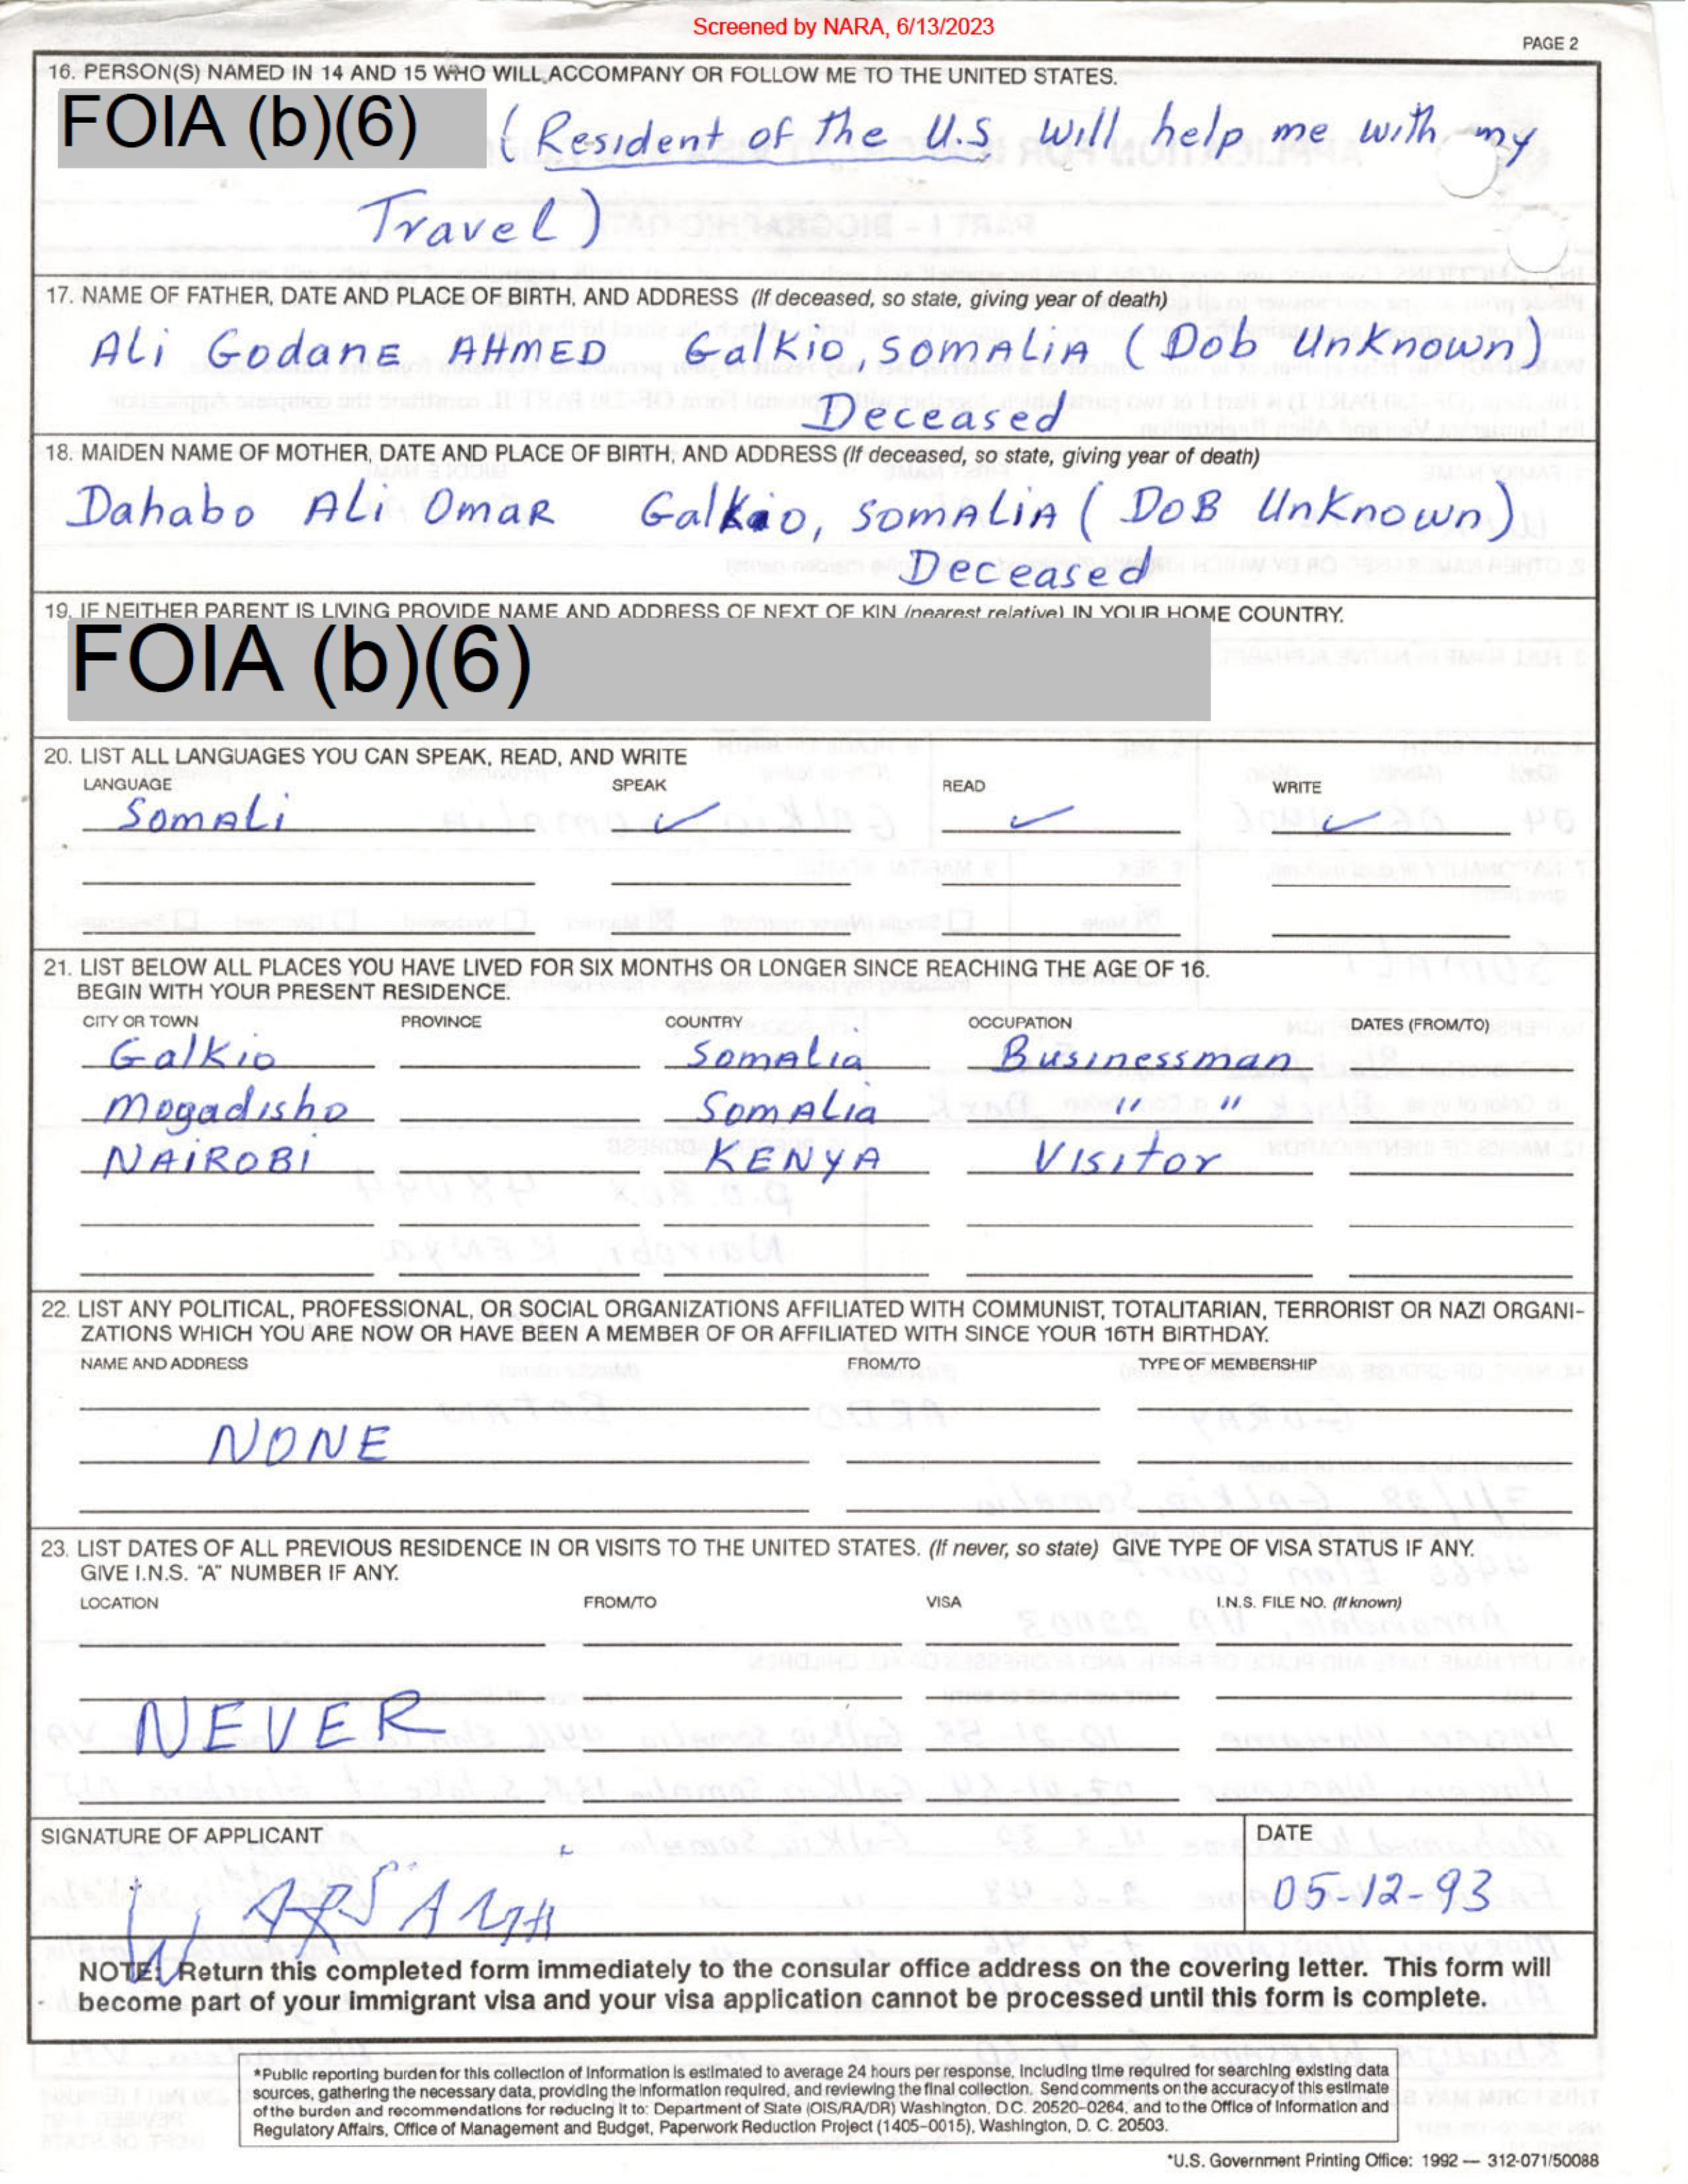 Screened by NARA, 6/13/2023
PAGE 2
16. PERSON(S) NAMED IN 14 AND 15 WHO WILL ACCOMPANY OR FOLLOW ME TO THE UNITED STATES.
FOIA (b)(6) (Resident of the U.S will help me with my
Travel)
17. NAME OF FATHER, DATE AND PLACE OF BIRTH, AND ADDRESS (If deceased, so state, giving year of death)
Ali Godane AHMED Galkio, SOMALIA (Dob Unknown)
Deceased
18. MAIDEN NAME OF MOTHER, DATE AND PLACE OF BIRTH, AND ADDRESS (If deceased, so state, giving year of death)
Dahabo Ali Omar Galkio, SOMALIA (DOB UnKnown)
Deceased
19. IF NEITHER PARENT IS LIVING PROVIDE NAME AND ADDRESS OF NEXT OF KIN (nearest relative) IN YOUR HOME COUNTRY.
FOIA (b)(6)
20. LIST ALL LANGUAGES YOU CAN SPEAK, READ, AND WRITE
LANGUAGE SPEAK READ WRITE
Somali ✓ ✓ ✓
21. LIST BELOW ALL PLACES YOU HAVE LIVED FOR SIX MONTHS OR LONGER SINCE REACHING THE AGE OF 16.
BEGIN WITH YOUR PRESENT RESIDENCE.
CITY OR TOWN PROVINCE COUNTRY OCCUPATION DATES (FROM/TO)
Galkio Somalia Businessman
Mogadisho Somalia " "
NAIROBI KENYA Visitor
22. LIST ANY POLITICAL, PROFESSIONAL, OR SOCIAL ORGANIZATIONS AFFILIATED WITH COMMUNIST, TOTALITARIAN, TERRORIST OR NAZI ORGANI-
ZATIONS WHICH YOU ARE NOW OR HAVE BEEN A MEMBER OF OR AFFILIATED WITH SINCE YOUR 16TH BIRTHDAY.
NAME AND ADDRESS FROM/TO TYPE OF MEMBERSHIP
NONE
23. LIST DATES OF ALL PREVIOUS RESIDENCE IN OR VISITS TO THE UNITED STATES. (If never, so state) GIVE TYPE OF VISA STATUS IF ANY.
GIVE I.N.S. "A" NUMBER IF ANY.
LOCATION FROM/TO VISA I.N.S. FILE NO. (If known)
NEVER
SIGNATURE OF APPLICANT DATE
05-12-93
NOTE: Return this completed form immediately to the consular office address on the covering letter. This form will
become part of your immigrant visa and your visa application cannot be processed until this form is complete.
*Public reporting burden for this collection of information is estimated to average 24 hours per response, including time required for searching existing data
sources, gathering the necessary data, providing the information required, and reviewing the final collection. Send comments on the accuracy of this estimate
of the burden and recommendations for reducing it to: Department of State (OIS/RA/DR) Washington, D.C. 20520-0264, and to the Office of Information and
Regulatory Affairs, Office of Management and Budget, Paperwork Reduction Project (1405-0015), Washington, D. C. 20503.
*U.S. Government Printing Office: 1992 — 312-071/50088